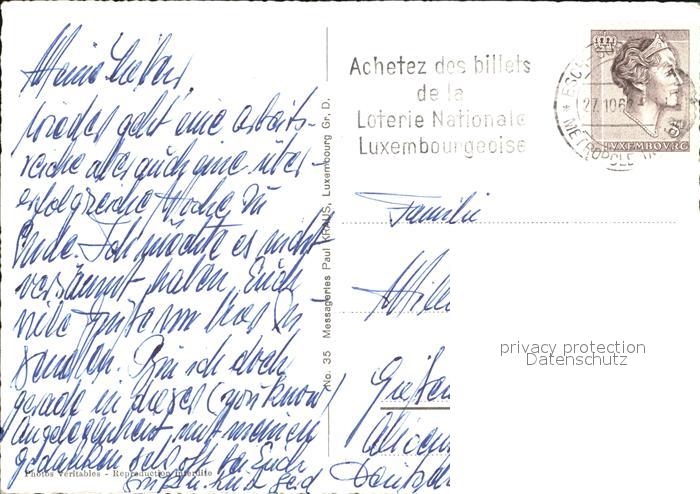 Meine Lieben,
Wieder geht eine arbeits-
reiche aber auch eine über-
erfolgreiche Woche zu
Ende. Ich möchte es nicht
versäumt haben, Euch
viele Grüße von hier zu
senden. Bin ich doch
gerade in dieser (you know)
Angelegenheit mit meinen
Gedanken sehr oft bei Euch
No. 35 Messageries Paul KRAUS, Luxembourg Gr. D.
Photos Véritables - Reproduction interdite
Achetez des billets
de la
Loterie Nationale
Luxembourgeoise
27.10.6
LUXEMBOURG
Familie
privacy protection
Datenschutz